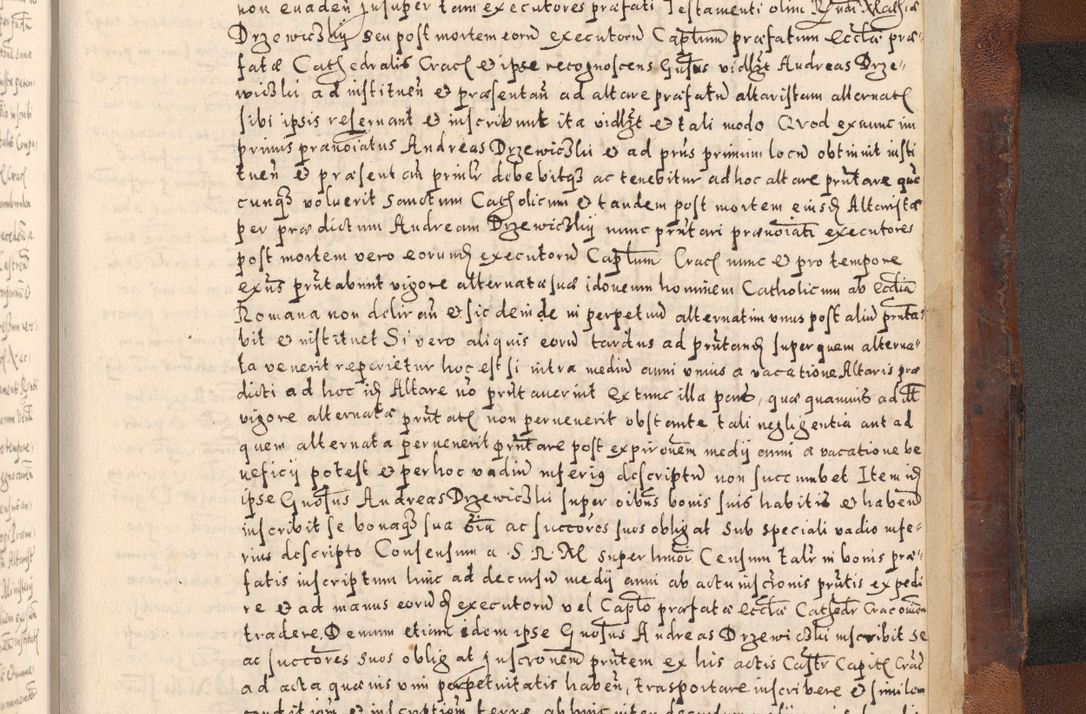 non evaden Insuper tam executores præfati Testamenti olim
Drzewiczky seu post mortem eorū executorū Captlum præfatum Eccliæ præ-
fatæ Cathedralis Crac et ipse recognoscens Gnsus vidlzt Andreas Drze-
wiczkii ad instituen et præsentan ad altare præfatū altaristam alternat
sibi ipsis reservant et inscribunt ita vidlzt et tali modo Qvod exnunc im
primis prænoiatus Andreas Drzewiczkii et ad prius primum locū obtinuit insti
tuen et præsentan prmlr debebitqȝ ac tenebitur ad hoc altare prntare quē
cunqȝ voluerit sanctum Catholicum et tandem post mortem eiusd Altaristæ
per prædictum Andream Drzewiczkiy nunc prntari prænoiati executores
post mortem vero eorumd executorū Captlum Crac nunc et pro tempore
exns prntabunt vigore alternatæ suæ idoneum hominem Catholicum ab Ecclia
Romana non deliran et sic deinde in perpetuū alternatim unus post aliū prnta
bit et instituet Si vero aliquis eorū tardus ad prntand super quem alterna-
ta venerit reperietur hoc est si intra mediū anni unius a vacatione Altaris præ
dicti ad hoc id Altare nō prntaverint Extunc illa pars, quæ quamvis ad
vigore alternatæ prntat non pervenerit obstante tali negligentia aut ad
quem alternata pervenerit prntare post expironem medij anni a vacatione be
neficij potest et per hoc vadiū inferius descriptū non succumbet Item id
ipse Gnosus Andreas Drzewiczkii super oibus bonis suis habitis et haben
inscribit se bonaqȝ sua oīa ac succores suos obligat sub speciali vadio infe-
rius descripto Consensum a S R M super hmoi Censum talr in bonis præ-
fatis inscriptum hinc ad decursū medij anni ab actu inscronis prntis expedi
re et ad manus eorūd executorū vel Captlo præfatæ Eccliæ Cathedr Cracovien
tradere, Demum etiam idem ipse Gnosus Andreas Drzewiczkii inscribit se
ac succores suos obligat Inscronem prntem ex his actis Castr Capit Crac
ad acta quævis vim perpetuitatis haben, trasportare inscribere et similem